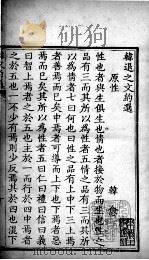 韓退之文約選
原性
韓愈
性也者與生俱生也情也者接於物而生也性之
品有三而其所以爲性者五情之品有三而其所
以爲情者七何也曰性之品有上中下三上焉
者善焉而已矣中焉者可導而上下也下焉者惡
焉而已矣其所以爲性者五曰仁曰禮曰信曰義
曰智上焉者之於五也主於一而行於四中焉者
之於五也一不少有焉則少反焉其於四也混下